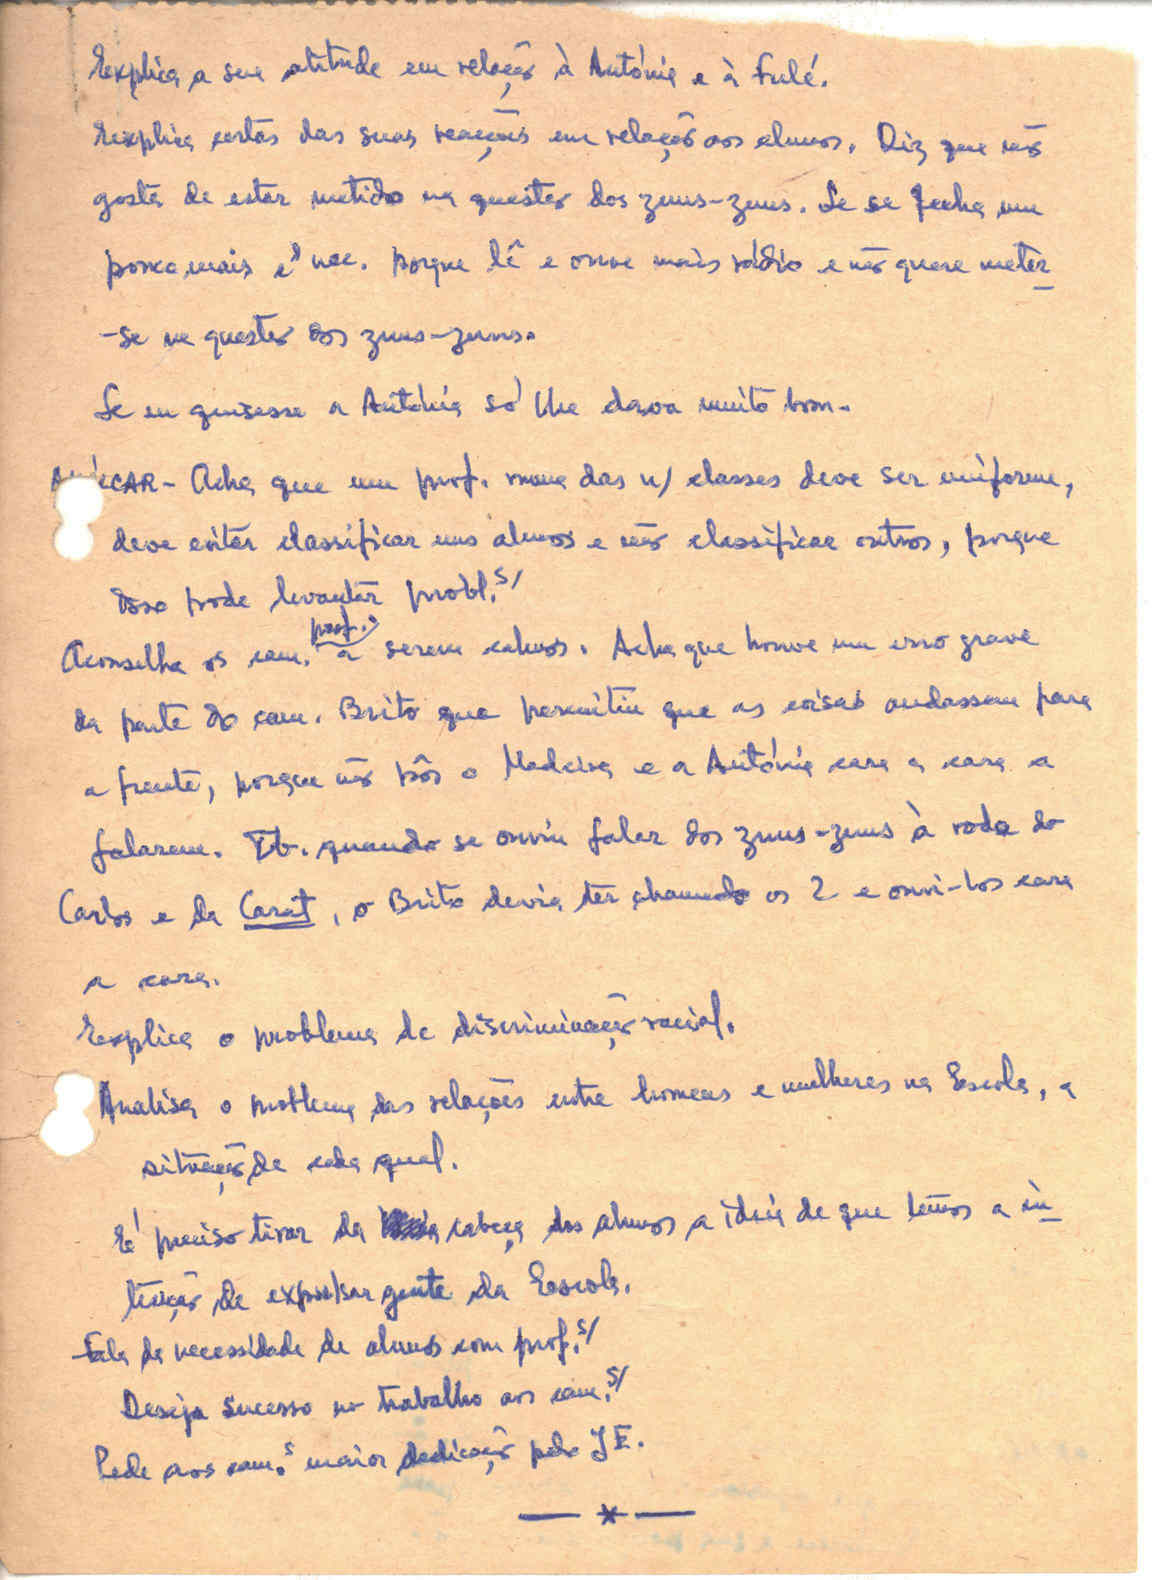 Explica a sua atitude em relação à António e à Fulé.
Explica certas das suas reacções em relação aos alunos. Diz que não
gosta de estar metido na questão dos zuns-zuns. Se se fecha um
pouco mais é nec. porque lê e ouve mais rádio e não quere meter
-se na questão dos zuns-zuns.
Se eu quisesse a Antónia só lhe dava muito bom.
AMÍLCAR - Acha que um prof. numa das n/ classes deve ser uniforme,
deve evitar classificar uns alunos e não classificar outros, porque
isso pode levantar probl.s/
Aconselha os cam. prof. a serem calmos. Acha que houve um erro grave
da parte do cam. Brito que permitiu que as coisas andassem para
a frente, porque não pôs o Madeira e a Antónia cara a cara a
falarem. Tb. quando se ouviu falar dos zuns-zuns à roda do
Carlos e da Carat, o Brito devia ter chamado os 2 e ouvi-los cara
a cara.
Explica o problema de discriminação racial.
Analisa o problema das relações entre homens e mulheres na Escola, a
situação de cada qual.
É preciso tirar da cabeça dos alunos a ideia de que temos a in
tenção de expulsar gente da Escola.
Fala da necessidade de alunos com prof.s/
Deseja sucesso no trabalho aos cam.s/
Pede aos cam.s maior dedicação pela I E.
— * —